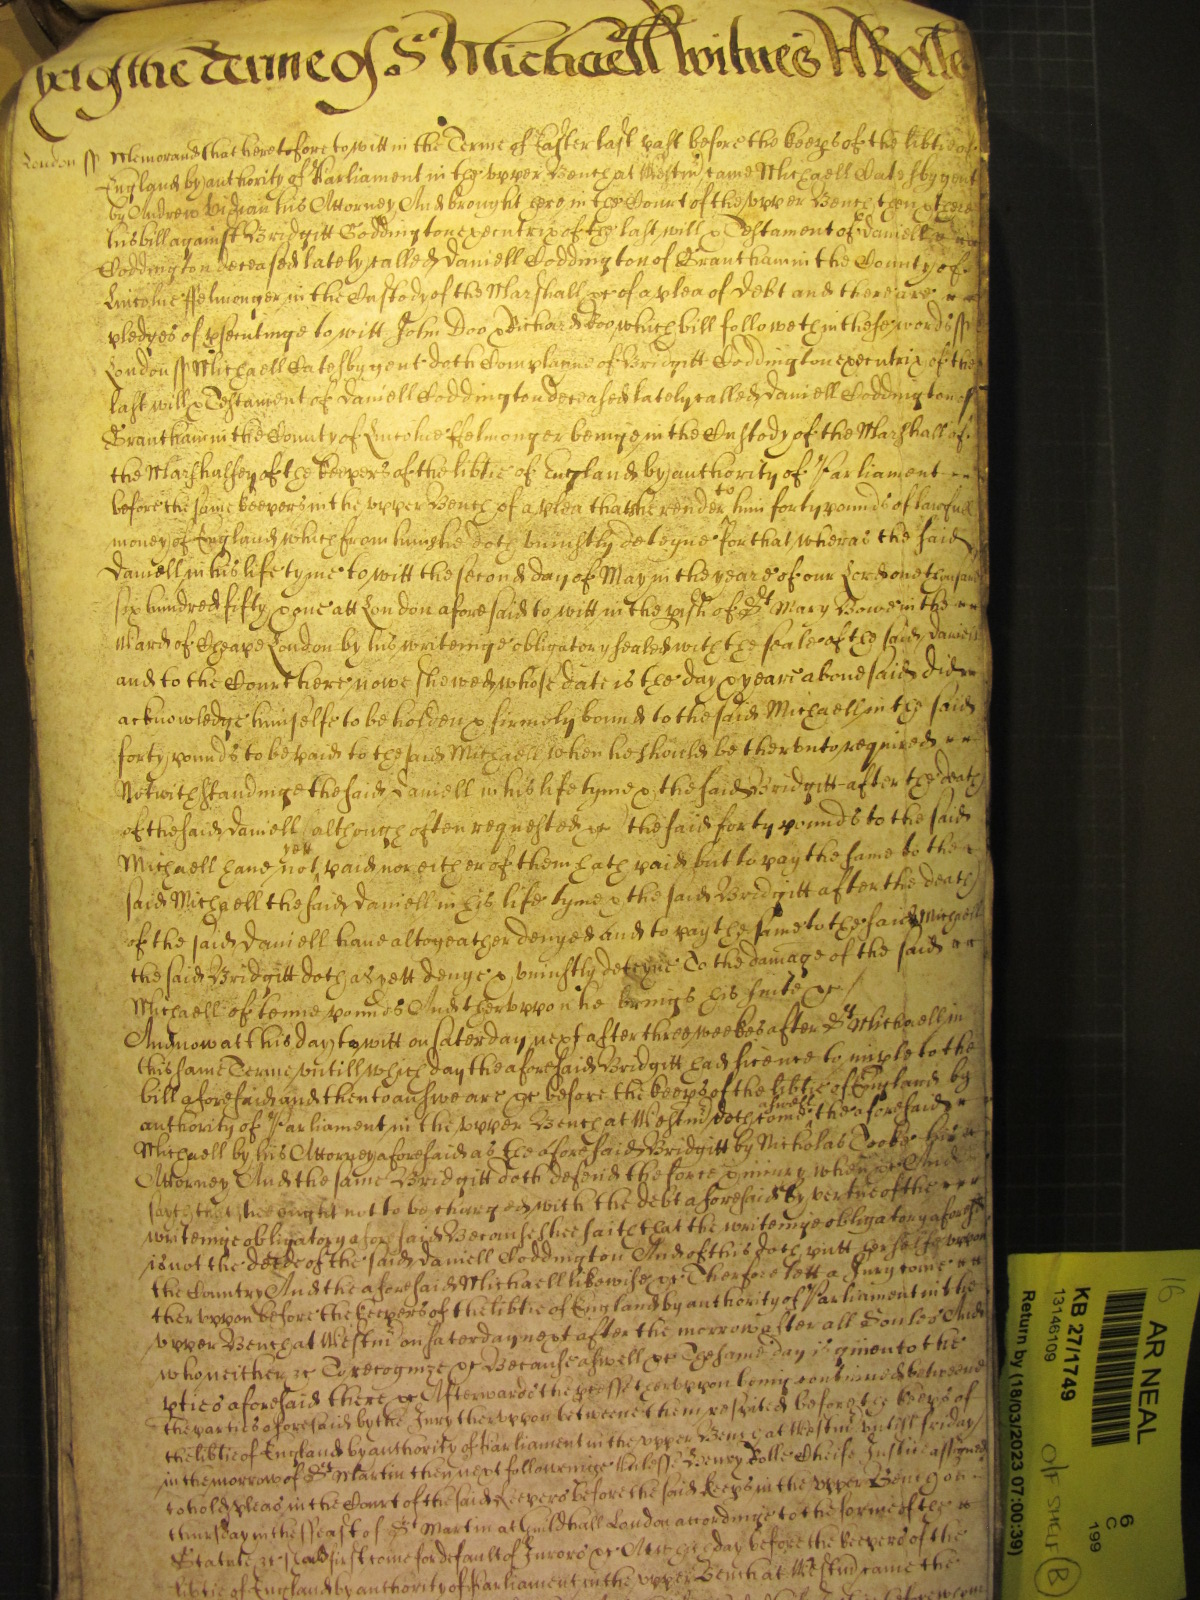 yet of the Terme of St Michaell witnes H Rolle
London ss Memorand that heretofore to witt in the Terme of Easter last past before the keeps of the libtie of
England by authority of Parliament in the upper Bench at Westm came Michaell Catesby gent
by Andrew Vidian his Attorney And brought here in the Court of the upper Bench then & there
his bill against Bridgitt Coddington executrix of the last will & Testament of Daniell
Coddington deceased lately called Daniell Coddington of Grantham in the County of
Lincolne ffelmonger in the Custody of the Marshall &c of a plea of Debt and there are
pledges of psecutinge to witt John Doo & Richard Roo which bill followeth in these words ss
London ss Michaell Catesby gent doth Complayne of Bridgitt Coddington executrix of the
last will & Testament of Daniell Coddington deceased lately called Daniell Coddington of
Grantham in the County of Lincolne ffelmonger beinge in the Custody of the Marshall of
the Marshalsey of the keepers of the libtie of England by authority of Parliament
before the same keepers in the upper Bench of a plea that she render to him forty pounds of lawfull
money of England which from him she doth uniustly deteyne For that wheras the said
Daniell in his life tyme to witt the second day of May in the yeare of our Lord one thousand
six hundred fifty & one att London aforesaid to witt in the pish of St Mary Bowe in the
Ward of Cheape London by his writeinge obligatory sealed with the seale of the said Daniell
and to the Court here nowe shewed whose date is the day & yeare above said did
acknowledge himselfe to be holden & firmely bound to the said Michaell in the said
forty pounds to be paid to the said Michaell when he should be therunto required
Notwithstandinge the said Daniell in his life tyme & the said Bridgitt after the death
of the said Daniell (although often requested &c) the said forty pounds to the said
Michaell have not yett paid nor either of them hath paid but to pay the same to the
said Michaell the said Daniell in his life tyme & the said Bridgitt after the death
of the said Daniell have altogeather denyed and to pay the same to the said Michaell
the said Bridgitt doth as yett denye & uniustly deteyne To the damage of the said
Michaell of tenne pounds And therupon he brings his suite &c/
And now at this day to witt on Saterday next after three weekes after St Michaell in
this same Terme untill which day the aforesaid Bridgitt had licence to imple to the
bill aforesaid and then to answeare &c before the keeps of the libtie of England by
authority of Parliament in the upper Bench at Westm doth come aswell the aforesaid
Michaell by his Attorney aforesaid as the aforesaid Bridgitt by Nicholas Cooke his
Attorney And the same Bridgitt doth defend the force & iniury when &c And
sayth that shee ought not to be charged with the debt aforesaid by vertue of the
writeinge obligatory aforesaid Because shee saith that the writeinge obligatory aforesd
is not the deede of the said Daniell Coddington And of this doth putt her selfe uppon
the Country And the aforesaid Michaell likewise &c Therfore lett a Jury come
therupon before the keepers of the libtie of England by authority of Parliament in the
upper Bench at Westm on Saterday next after the morrow after all Soules And
who neither &c To recognize &c Because aswell &c The same day is given to the
pties aforesaid there &c Afterwards the psesse therupon being continued betweene
the parties aforesaid by the Jury therupon betweene them respited before the keeps of
the libtie of England by authority of Parliament in the upper Bench at Westm untill friday
in the morrow of St Martin then next followeinge Unlesse Henry Rolle Cheife Justice assigned
to hold pleas in the Court of the said keepers before the said keeps in the upper Bench on
thursday in the ffeast of St Martin at Guildhall London accordinge to the forme of the
Statute &c should first come for default of Jurors &c Att which day before the keepers of the
libtie of England by authority of Parliament in the upper Bench at Westm came the
16
AR NEAL
KB 27/1749
13146109
Return by (18/03/2023 07:00:39)
6
C
199
O/F SHELF
B